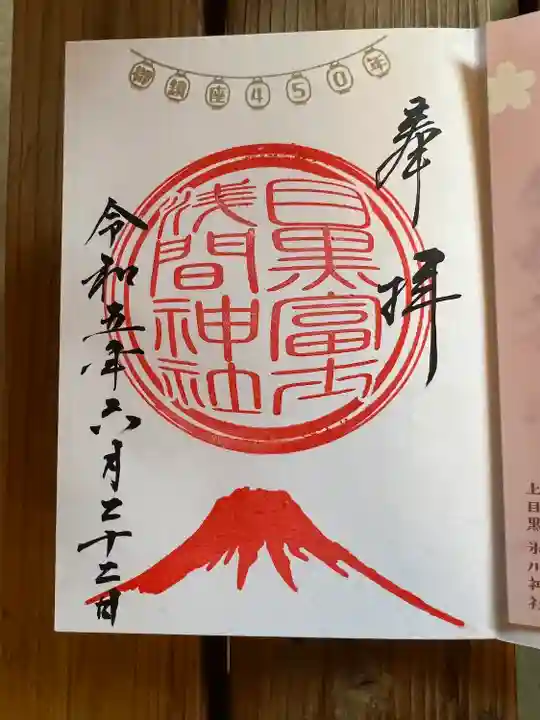 御鎮座450年
奉拝
目黒富士
浅間神社
令和五年六月二十二日
上目黒 氷川神社